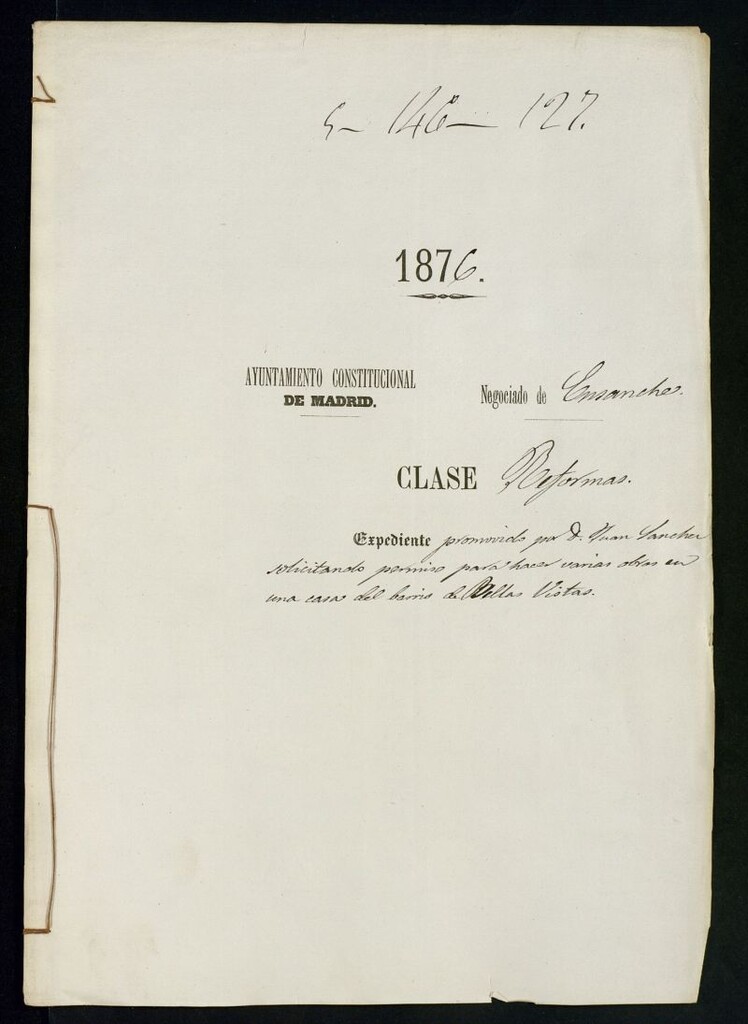 5 - 146 - 127.
1876.
AYUNTAMIENTO CONSTITUCIONAL
DE MADRID.
Negociado de Ensanche.
CLASE Reformas.
Expediente promovido por D. Juan Sanchez
solicitando permiso para hacer varias obras en
una casa del barrio de Bellas Vistas.